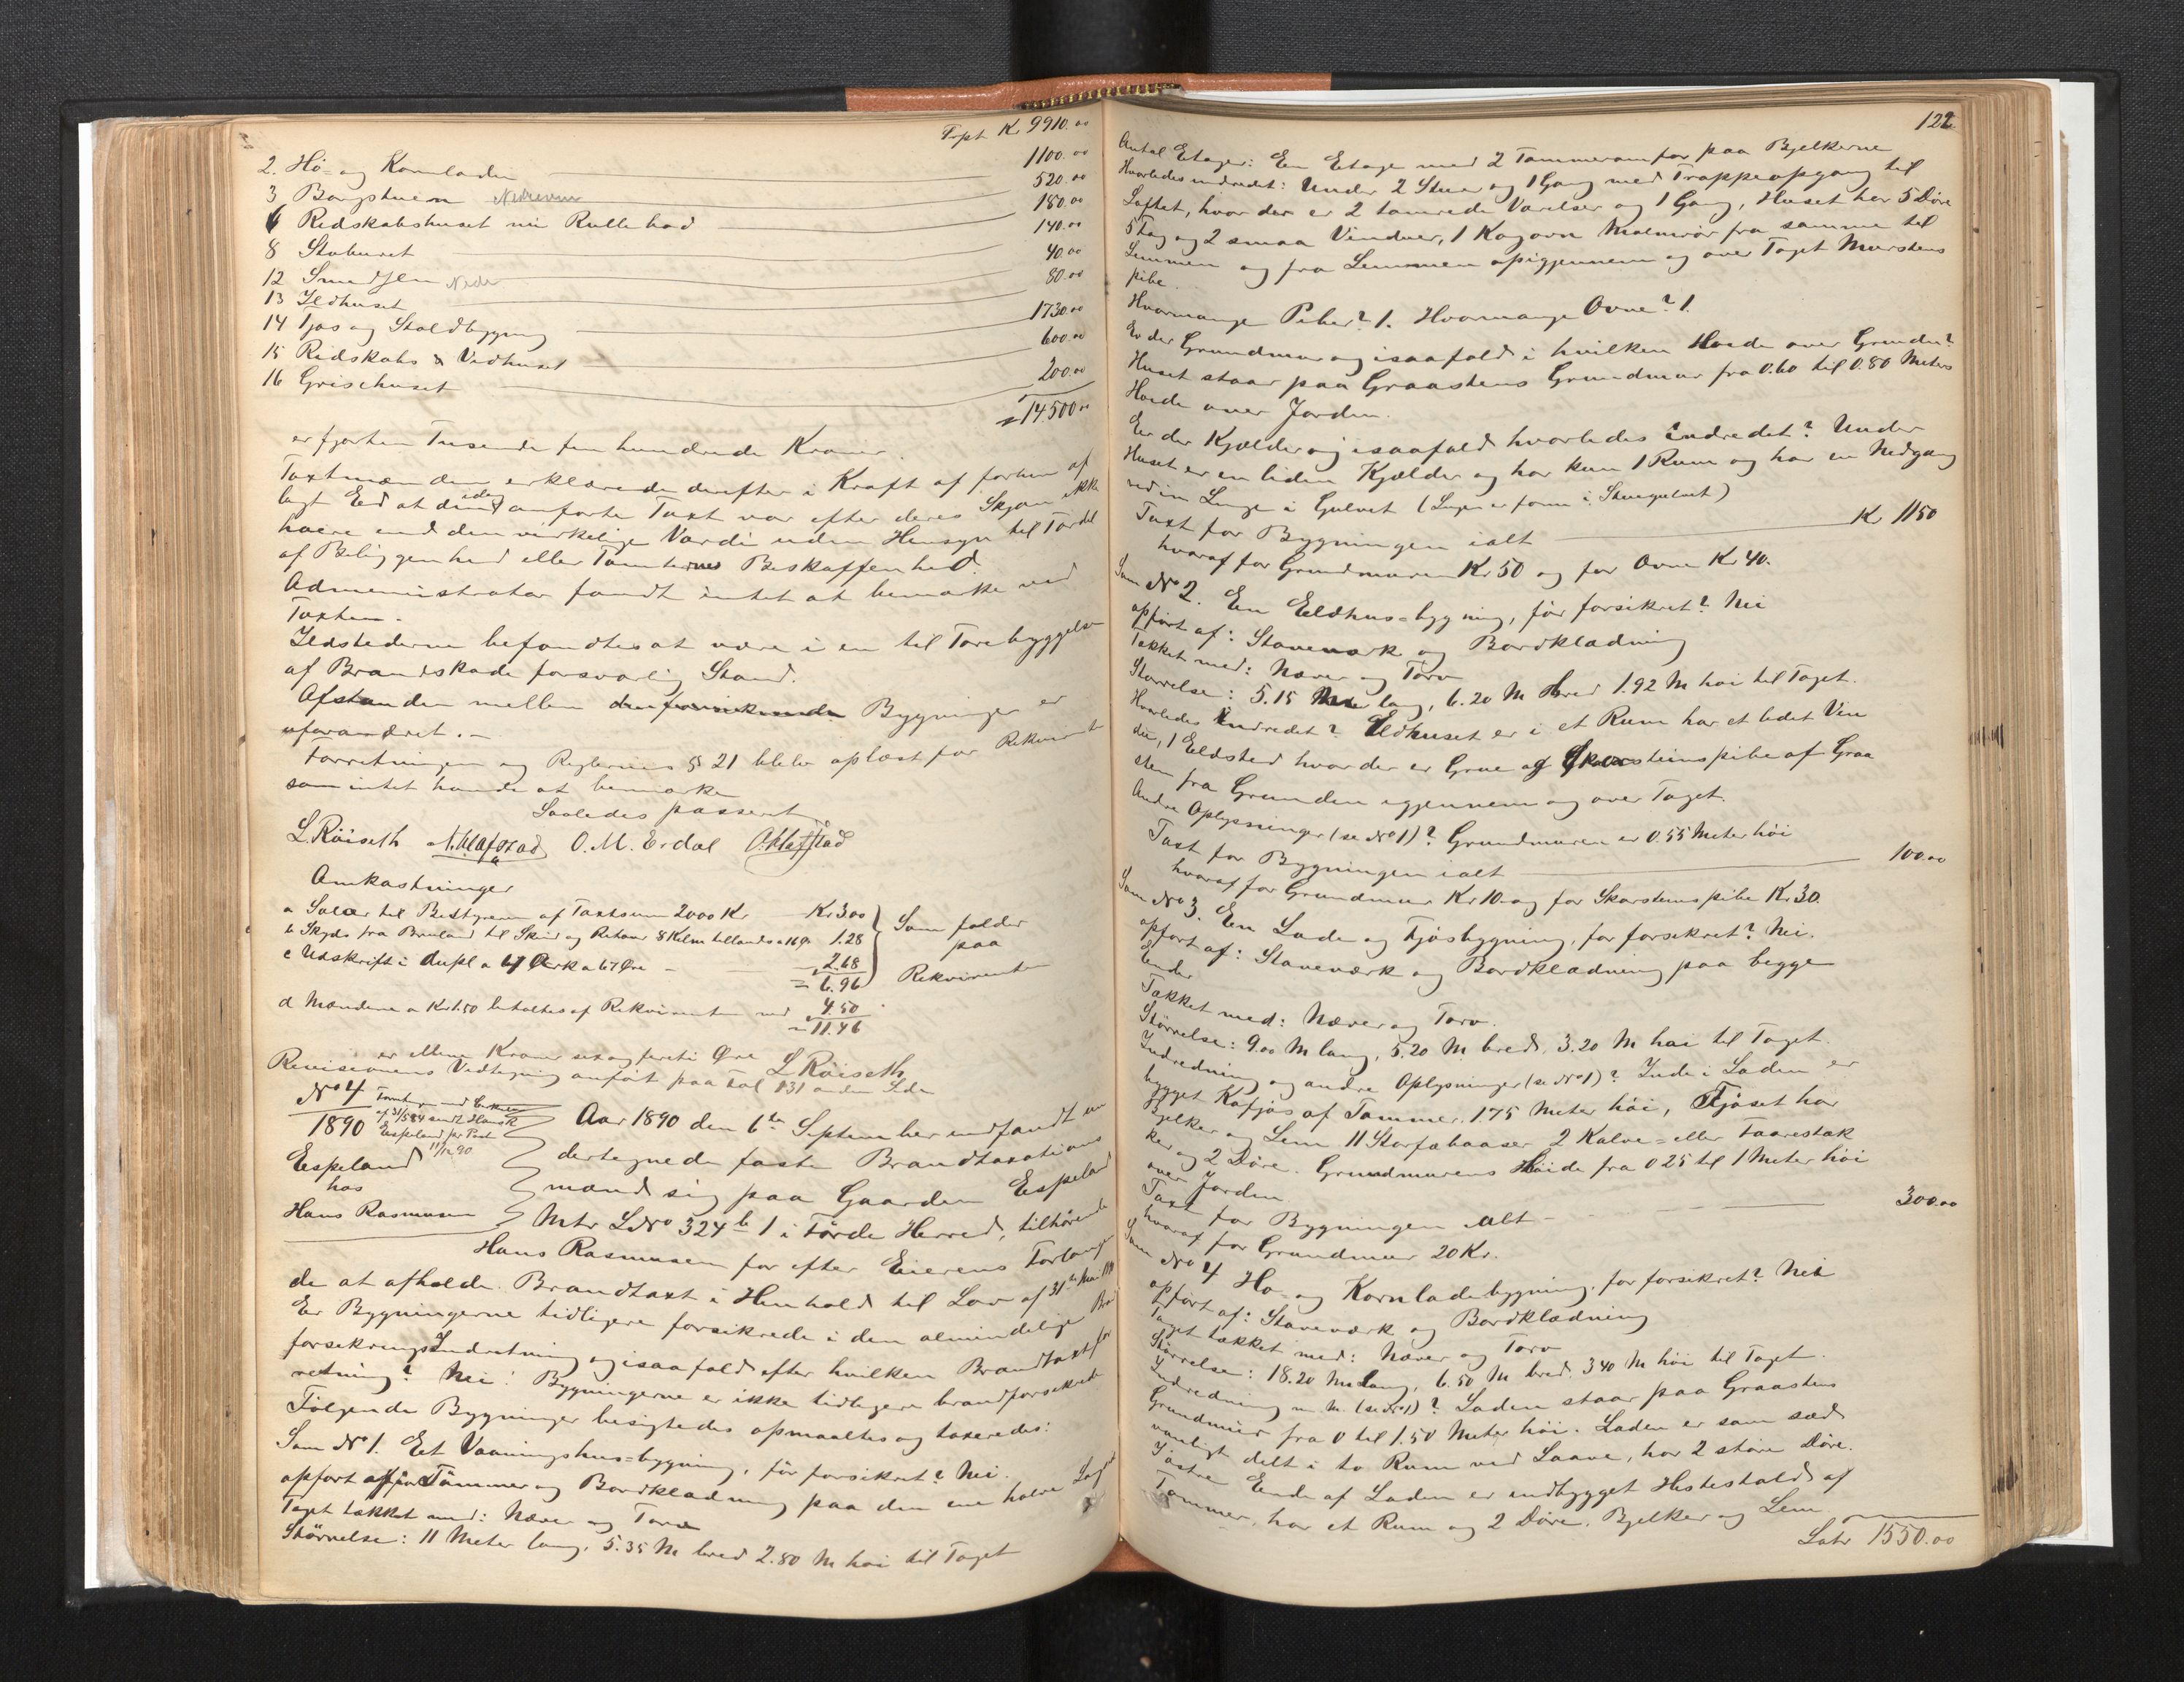 Trpt Kr 9910.00
2. Hö- og Kornladen 1100.00
3 Borgstuen Nedreven 520.00
6 Redskabshuset nu Rullebod 180.00
8 Stoburet 140.00
12 Smedjen Nedr 40.00
13 Ildhuset 80.00
14 Fjøs og Staldbygning 1730.00
15 Redskabs & Vedhuset 600.00
16 Grisehuset 200.00
= 14500.00
er fjorten Tusende fem hundrede Kroner.
Taxtmændene erklærede derefter i Kraft af forhen af
lagt Ed at den idag anförte Taxt var efter deres Skjøn ikke
høiere end den virkelige Værdi uden Hensyn til Fordel
af Beliggenhed eller Tomternes Beskaffenhed.
Administrator fandt intet at bemærke ved
Taxten.
Ildstederne befandtes at være i en til Forebyggelse
af Brandskade forsvarlig Stand.
Afstanden mellem Bygninger er
uforandret. -
Forretningen og Reglernes § 21 blev oplæst for Rekvirent
som intet havde at bemærke
Saaledes passert
L. Röiseth N. Hafstad O. M. Erdal O. Hafstad
Omkostninger
a Salær til Bestyreren af Taxtsum 2000 Kr Kr 3.00
b Skyds fra Bruland til Skei og Retour 8 Kilm tillands a 16 Ør 1.28
c Udskrift i dupl a Ark a 67 Øre - 2.68
= 6.96
Som falder
paa
Rekvirenten
d Mændene a Kr 1.50 betaltes af Rekvirenten med 4.50
= 11.46
er elleve Kroner sex og førti Øre L Röiseth
Revisionens Vedtegning anført paa Fol 131 anden Side
No 4
1890
Espeland
hos
Hans Rasmusen
af 31/5 84 sendt Hans R
Espeland pr Post
11/12 90.
Aar 1890 den 6te September indfandt un
dertegnede faste Brandtaxations
mænd sig paa Gaarden Espeland
Mtr LNo 324 b 1 i Förde Herred, tilhörende
Hans Rasmusen for efter Eierens Forlangen
de at afholde Brandtaxt i Henhold til Lov af 31te Mai
Er Bygningerne tidligere forsikrede i den almindelige Brand
forsikringsIndretning og isaafald efter hvilken Brandtaxtfor
retning? Nei! Bygningerne er ikke tidligere brandforsikret
Følgende Bygninger besigtedes opmaaltes og taxeredes:
Som No 1. Et Vaaningshus-bygning, för forsikret? Nei.
opført af Tømmer og Bordklædning paa den ene halve
Taget tækket med: Næver og Torv
Störrelse: 11 Meter lang, 5.35 M bred 2.80 M høi til Taget
122
Antal Etager: En Etage med 2 Tømmeromfar paa Bjelkerne
Hvorledes indredet: Under 2 Stuer og 1 Gang med Trappeopgang til
Loftet, hvor der er 2 Værelser og 1 Gang, Huset har 5 Døre
5 Fag og 2 smaa Vinduer, 1 Kogovn fra samme til
Lemmen og fra Lemmen opigjennem og over Taget Murstens
pibe.
Hvormange Piber? 1. Hvormange Ovne? 1.
Er der Grundmur og isaafald i hvilken Høide over Grunden?
Huset staar paa Graastens Grundmur fra 0.60 til 0.80 Meters
Høide over Jorden.
Er der Kjælder og isaafald hvorledes indredet? Under
Huset er en liden Kjælder og har kun 1 Rum og har en Nedgang
ved en Lem i Gulvet
Taxt for Bygningen ialt Kr 1150
hvoraf for Grundmuren Kr 50 og for Ovne Kr 40.
Som No 2. En Eldhus-bygning, för forsikret? Nei
opført af: Stavværk og Bordklædning
Tækket med: Næver og Torv
Størrelse: 5.15 M lang, 6.20 M bred 1.92 M høi til Taget.
Hvorledes indredet? Eldhuset er i et Rum har et lidet Vin
due, 1 Eldsted hvor der er Grue og Skorsteinspibe af Graa
sten fra Grunden igjennem og over Taget.
Andre Oplysninger (se No 1)? Grundmuren er 0.55 Meter høi
Taxt for Bygningen ialt 100.00
hvoraf for Grundmur Kr 10. og for Skorstenspibe Kr 30.
Som No 3. En Lade og Fjøsbygning, for forsikret? Nei.
opført af: Staveværk og Bordklædning paa begge
Ender
Tækket med: Næver og Torv.
Störrelse: 9.00 M lang, 5.20 M bred, 3.20 M høi til Taget.
Indredning og andre Oplysninger (se No 1)? Inde i Laden er
bygget Kofjøs af Tømmer, 1.75 Meter høi, Fjøset har
Bjelker og Lem 11 Storfæbaaser 2 Kalve- eller
ker og 2 Döre. Grundmurens Høide fra 0.25 til 1 Meter høi
over Jorden
Taxt for Bygningen ialt 300.00
hvoraf for Grundmur 20 Kr.
Som No 4 Hø- og Kornladebygning, for forsikret? Nei
opført af: Staveværk og Bordklædning
Taget tækket med: Næver og Torv
Størrelse: 18.20 M lang, 6.50 M bred 3.40 M høi til Taget.
Indredning m. m. (se No 1)? Laden staar paa Graastens
Grundmur fra 0 til 1.50 Meter høi. Laden er som sæd
vanligt delt i to Rum ved Laave, har 2 større Døre.
I østre Ende af Laden er indbygget Hestestald af
Tømmer, har et Rum og 2 Døre. Bjelker og Lem
Latr 1550.00